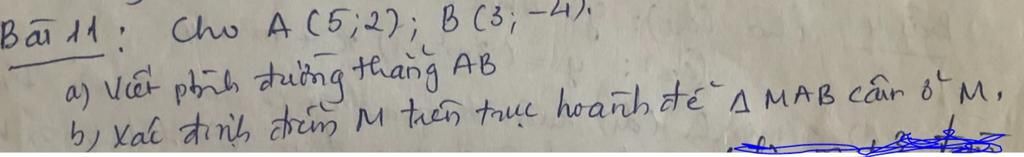 Bài 11: Cho A (5;2); B (3; -4).
a) Viết ptrình đường thẳng AB
b) Xác định điểm M trên trục hoành để Δ MAB cân ở M.